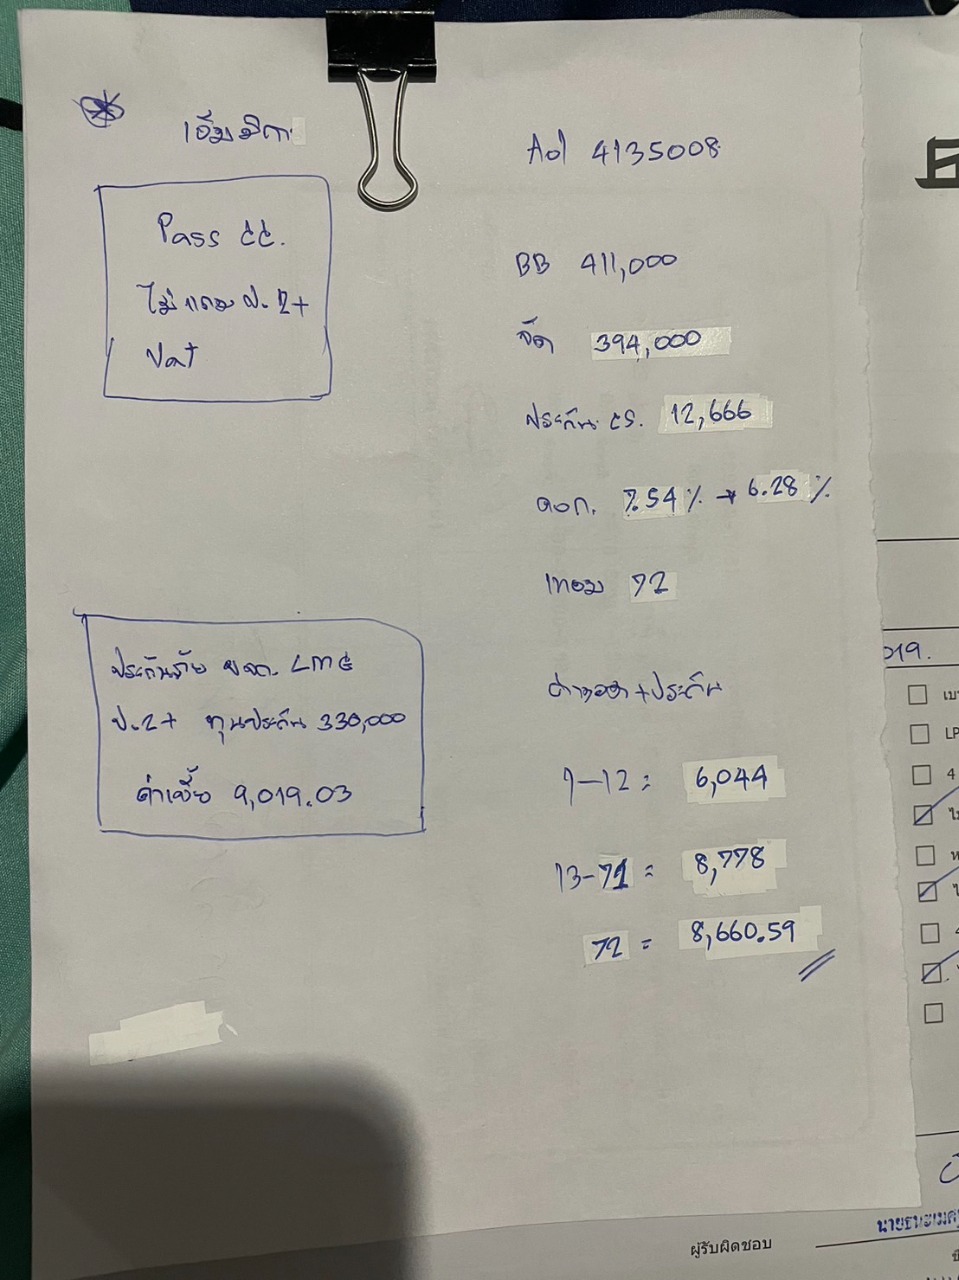 เอ็มมิกา
Pass ฝฝ.
ไม่แถม ป.2+
Vat
AOL 4135008
BB 411,000
จัด 394,000
ประกัน คร. 12,666
ดอก. 7.54 % → 6.28 %
เทอม 72
ค่างวด + ประกัน
1-12 = 6,044
13-71 = 8,778
72 = 8,660.59
ประกันภัย บจก. LMG
ป.2+ ทุนประกัน 330,000
ค่าเบี้ย 9,019.03
019.
LP
4
ผู้รับผิดชอบ